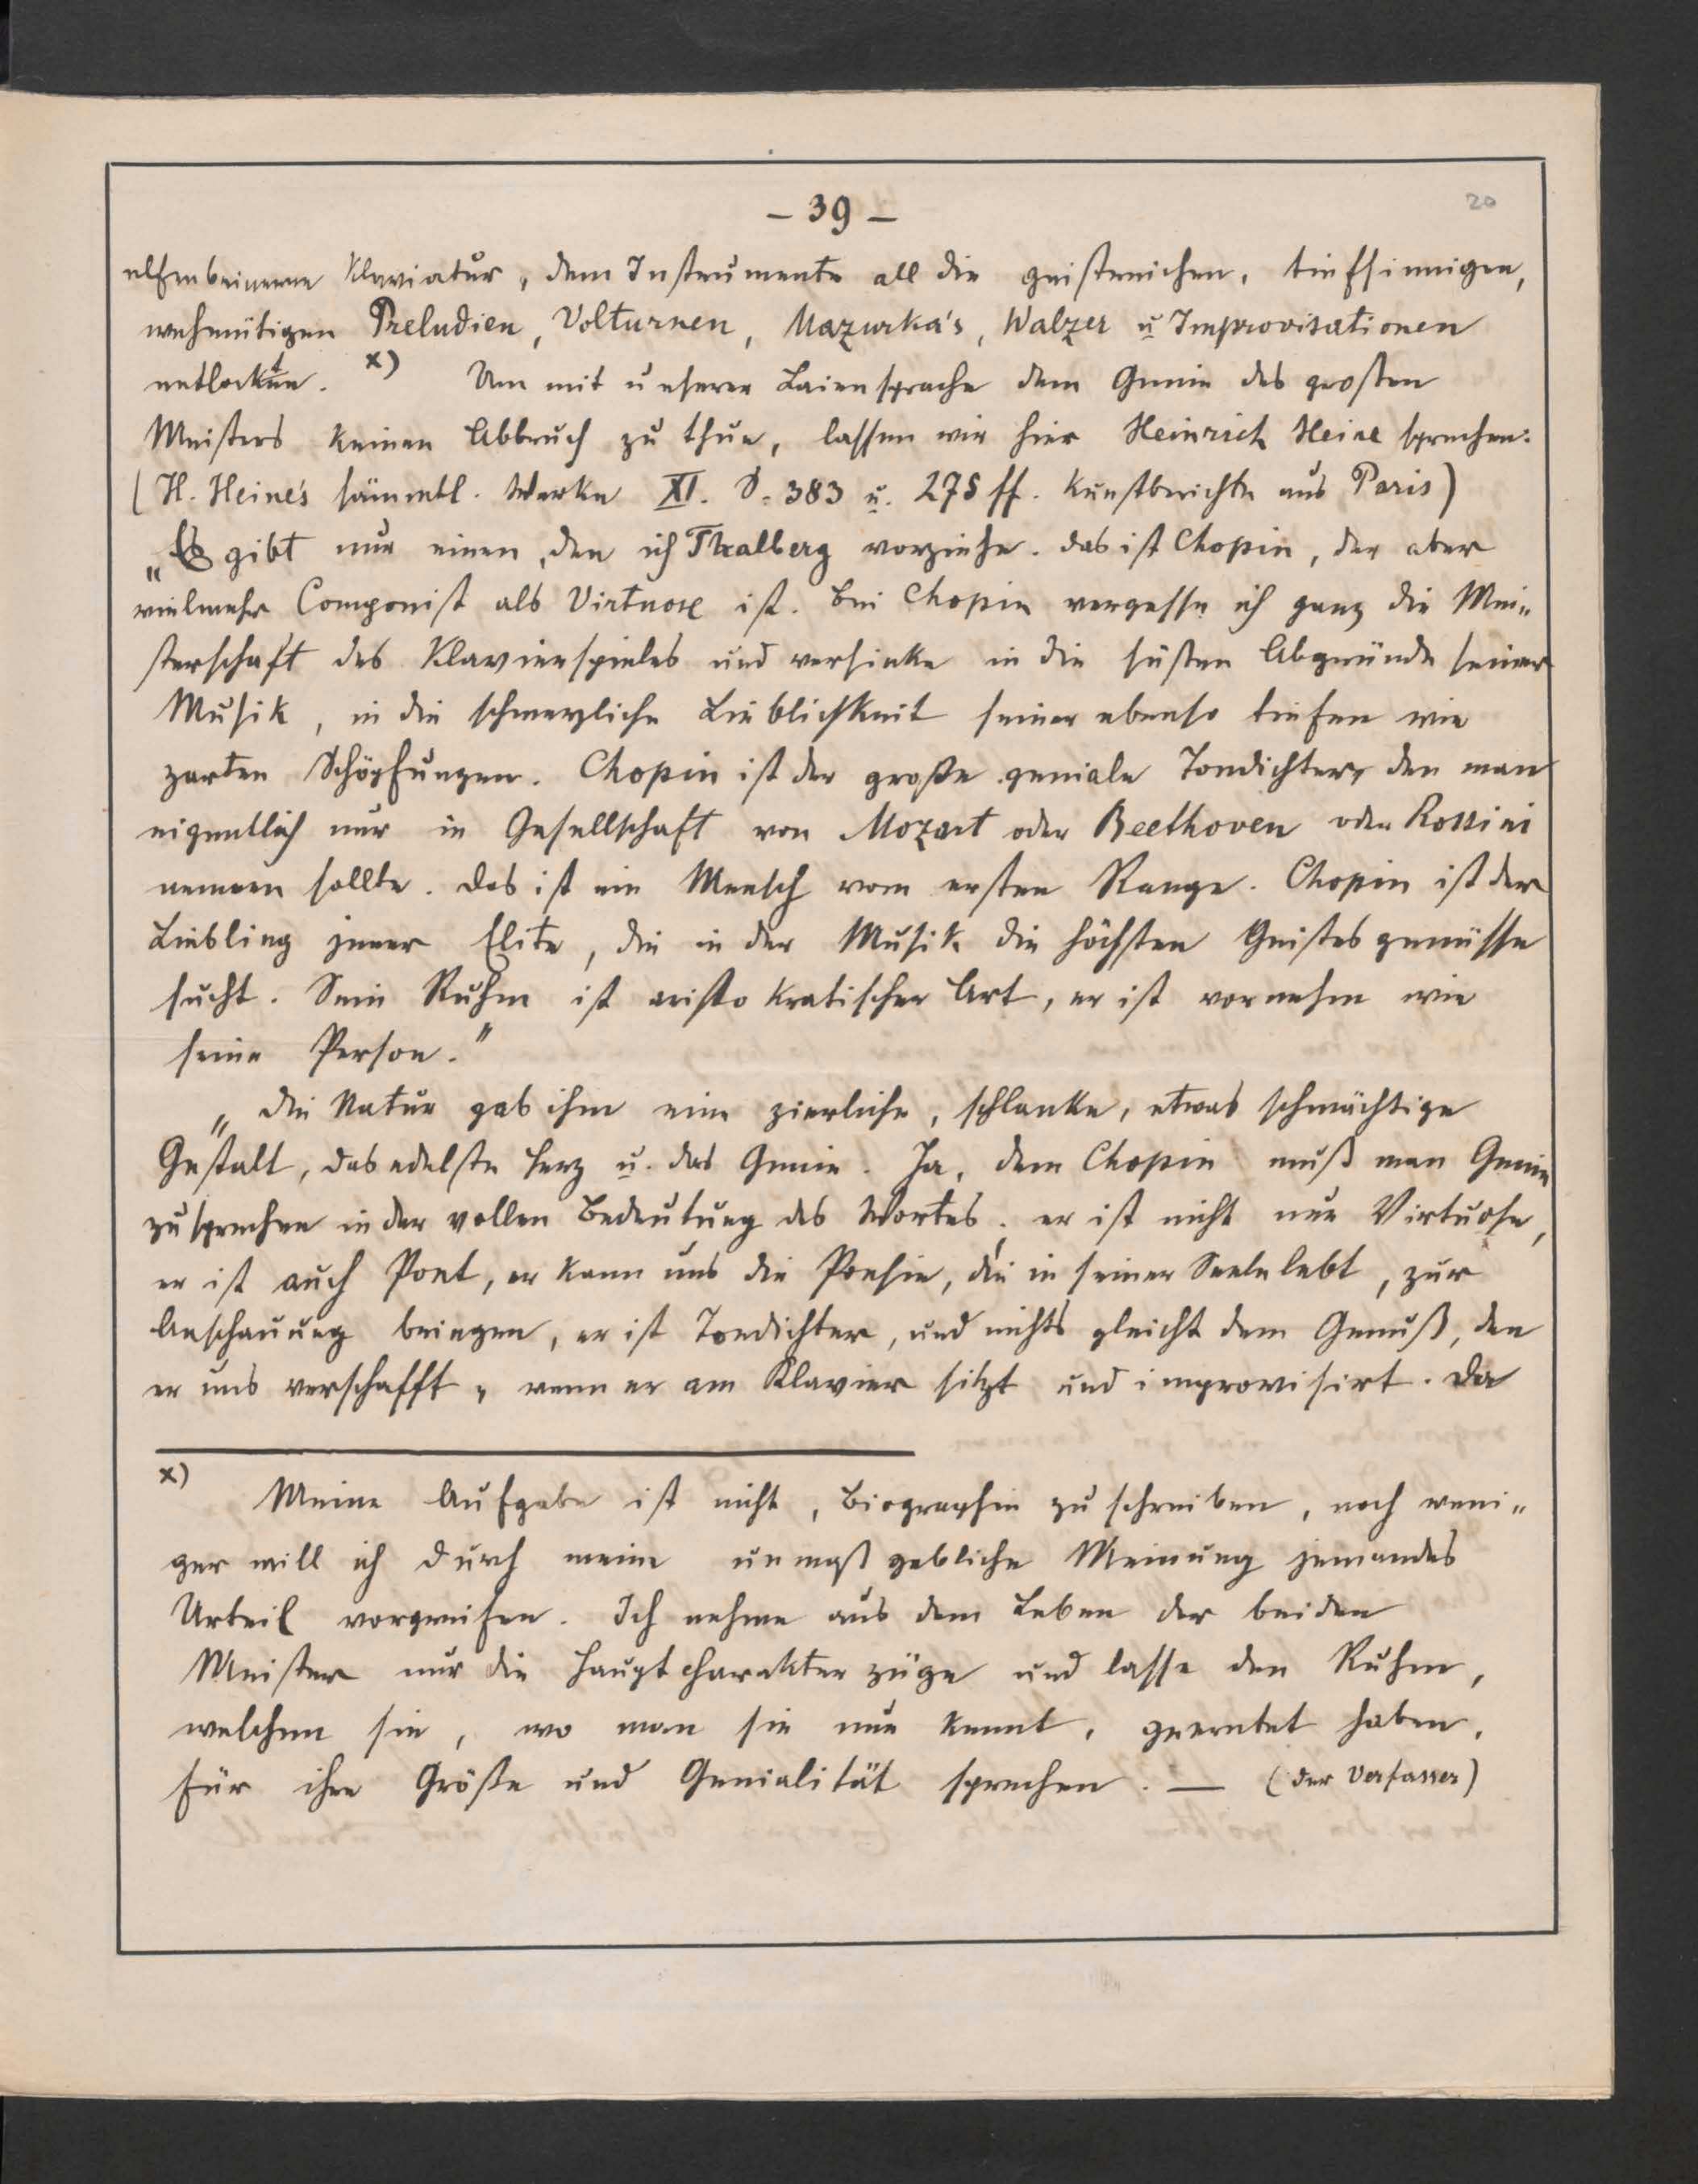 – 39 –
20
elfenbeinerne Klaviatur, dem Instrumente all die geistreichen, tiefsinnigen,
wehmütigen Preludien, Volturnen, Mazurka's, Walzer u Improvisationen
entlockten. x) Um mit unserer Laiensprache dem Genie des großen
Meisters keinen Abbruch zu thun, lassen wir hier Heinrich Heine sprechen:
(H. Heine's sämmtl. Werke XI. S. 383 u. 275 ff. Kunstberichte aus Paris)
„Es gibt nur einen, den ich Thalberg vorziehe. das ist Chopin, der aber
vielmehr Componist als Virtuose ist. Bei Chopin vergesse ich ganz die Mei„
sterschaft des Klavierspieles und versinke in die süßen Abgründe seiner
Musik, in die schmerzliche Lieblichkeit seiner ebenso tiefen wie
zarten Schöpfungen. Chopin ist der große geniale Tondichter, den man
eigentlich nur in Gesellschaft von Mozart oder Beethoven oder Rossini
nennen sollte. Das ist ein Mensch vom ersten Range. Chopin ist der
Liebling jener Elite, die in der Musik die höchsten Geistesgenüsse
sucht. Sein Ruhm ist aristokratischer Art, er ist vornehm wie
seine Person."
„Die Natur gab ihm eine zierliche, schlanke, etwas schmächtige
Gestalt, das edelste Herz u. das Genie. Ja, dem Chopin muß man Genie
zusprechen in der vollen Bedeutung des Wortes; er ist nicht nur Virtuose,
er ist auch Poet, er kann uns die Poesie, die in seiner Seele lebt, zur
Anschauung bringen, er ist Tondichter, und nichts gleicht dem Genuß, den
er uns verschafft, wenn er am Klavier sitzt und improvisirt. Da
x) Meine Aufgabe ist nicht, Biographie zu schreiben, noch weni„
ger will ich durch meine unmaßgebliche Meinung jemandes
Urteil vorgreifen. Ich nehme aus dem Leben der beiden
Meister nur die Hauptcharakterzüge und lasse den Ruhm,
welchen sie, wo man sie nur kennt, geerntet haben,
für ihre Größe und Genialität sprechen. — (der Verfasser)